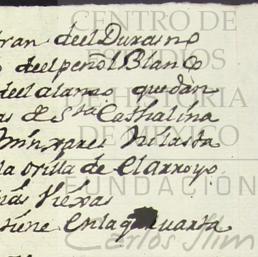 tran deel Durasno
deel peñol Blanco
deel alamo quedan
as de Sta Cathalina
la orilla de el arroyo
mas tierras
tiene en la quarta
CENTRO DE
ESTUDIOS
DE HISTORIA
DE MÉXICO
FUNDACIÓN
Carlos Slim